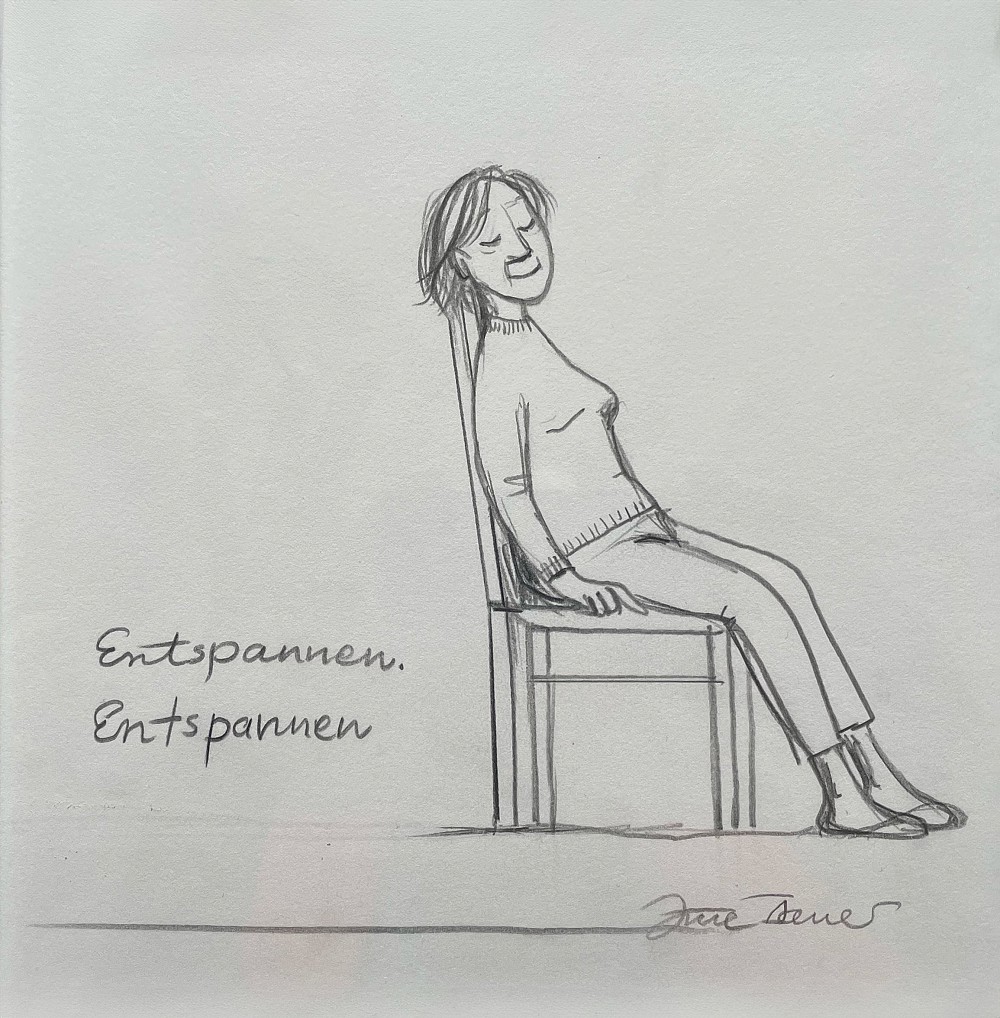 Entspannen.
Entspannen